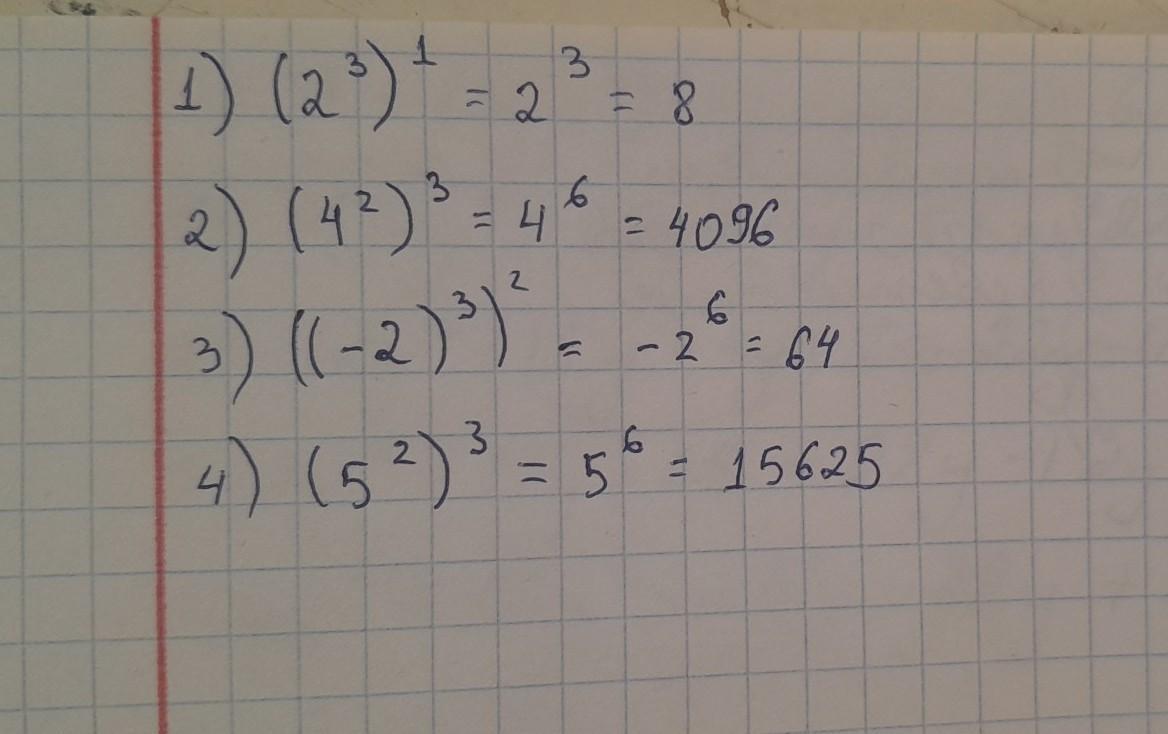 1) (2³)¹ = 2³ = 8
2) (4²)³ = 4⁶ = 4096
3) ((-2)³)² = -2⁶ = 64
4) (5²)³ = 5⁶ = 15625